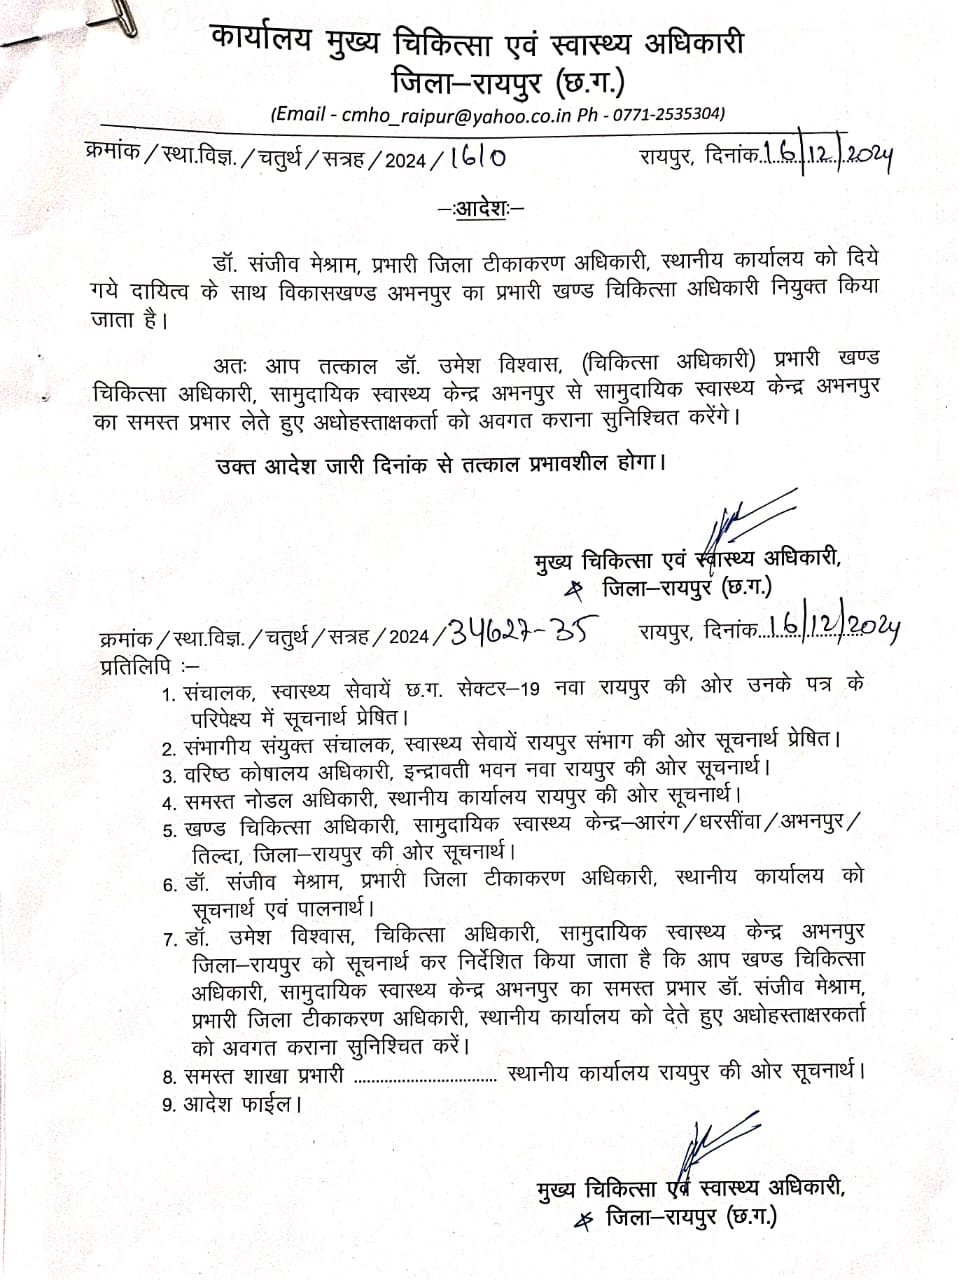 कार्यालय मुख्य चिकित्सा एवं स्वास्थ्य अधिकारी
जिला–रायपुर (छ.ग.)
(Email - cmho_raipur@yahoo.co.in Ph - 0771-2535304)
क्रमांक / स्था.विज्ञ. / चतुर्थ / सत्रह / 2024 / 1610 रायपुर, दिनांक.16/12/2024
–ः आदेशः–
डॉ. संजीव मेश्राम, प्रभारी जिला टीकाकरण अधिकारी, स्थानीय कार्यालय को दिये
गये दायित्व के साथ विकासखण्ड अभनपुर का प्रभारी खण्ड चिकित्सा अधिकारी नियुक्त किया
जाता है।
अतः आप तत्काल डॉ. उमेश विश्वास, (चिकित्सा अधिकारी) प्रभारी खण्ड
चिकित्सा अधिकारी, सामुदायिक स्वास्थ्य केन्द्र अभनपुर से सामुदायिक स्वास्थ्य केन्द्र अभनपुर
का समस्त प्रभार लेते हुए अधोहस्ताक्षकर्ता को अवगत कराना सुनिश्चित करेंगे।
उक्त आदेश जारी दिनांक से तत्काल प्रभावशील होगा।
मुख्य चिकित्सा एवं स्वास्थ्य अधिकारी,
जिला–रायपुर (छ.ग.)
क्रमांक / स्था.विज्ञ. / चतुर्थ / सत्रह / 2024 / 34627-35 रायपुर, दिनांक.16/12/2024
प्रतिलिपि :–
1. संचालक, स्वास्थ्य सेवायें छ.ग. सेक्टर–19 नवा रायपुर की ओर उनके पत्र के
परिपेक्ष्य में सूचनार्थ प्रेषित।
2. संभागीय संयुक्त संचालक, स्वास्थ्य सेवायें रायपुर संभाग की ओर सूचनार्थ प्रेषित।
3. वरिष्ठ कोषालय अधिकारी, इन्द्रावती भवन नवा रायपुर की ओर सूचनार्थ।
4. समस्त नोडल अधिकारी, स्थानीय कार्यालय रायपुर की ओर सूचनार्थ।
5. खण्ड चिकित्सा अधिकारी, सामुदायिक स्वास्थ्य केन्द्र–आरंग / धरसींवा / अभनपुर /
तिल्दा, जिला–रायपुर की ओर सूचनार्थ।
6. डॉ. संजीव मेश्राम, प्रभारी जिला टीकाकरण अधिकारी, स्थानीय कार्यालय को
सूचनार्थ एवं पालनार्थ।
7. डॉ. उमेश विश्वास, चिकित्सा अधिकारी, सामुदायिक स्वास्थ्य केन्द्र अभनपुर
जिला–रायपुर को सूचनार्थ कर निर्देशित किया जाता है कि आप खण्ड चिकित्सा
अधिकारी, सामुदायिक स्वास्थ्य केन्द्र अभनपुर का समस्त प्रभार डॉ. संजीव मेश्राम,
प्रभारी जिला टीकाकरण अधिकारी, स्थानीय कार्यालय को देते हुए अधोहस्ताक्षरकर्ता
को अवगत कराना सुनिश्चित करें।
8. समस्त शाखा प्रभारी ................................ स्थानीय कार्यालय रायपुर की ओर सूचनार्थ।
9. आदेश फाईल।
मुख्य चिकित्सा एवं स्वास्थ्य अधिकारी,
जिला–रायपुर (छ.ग.)